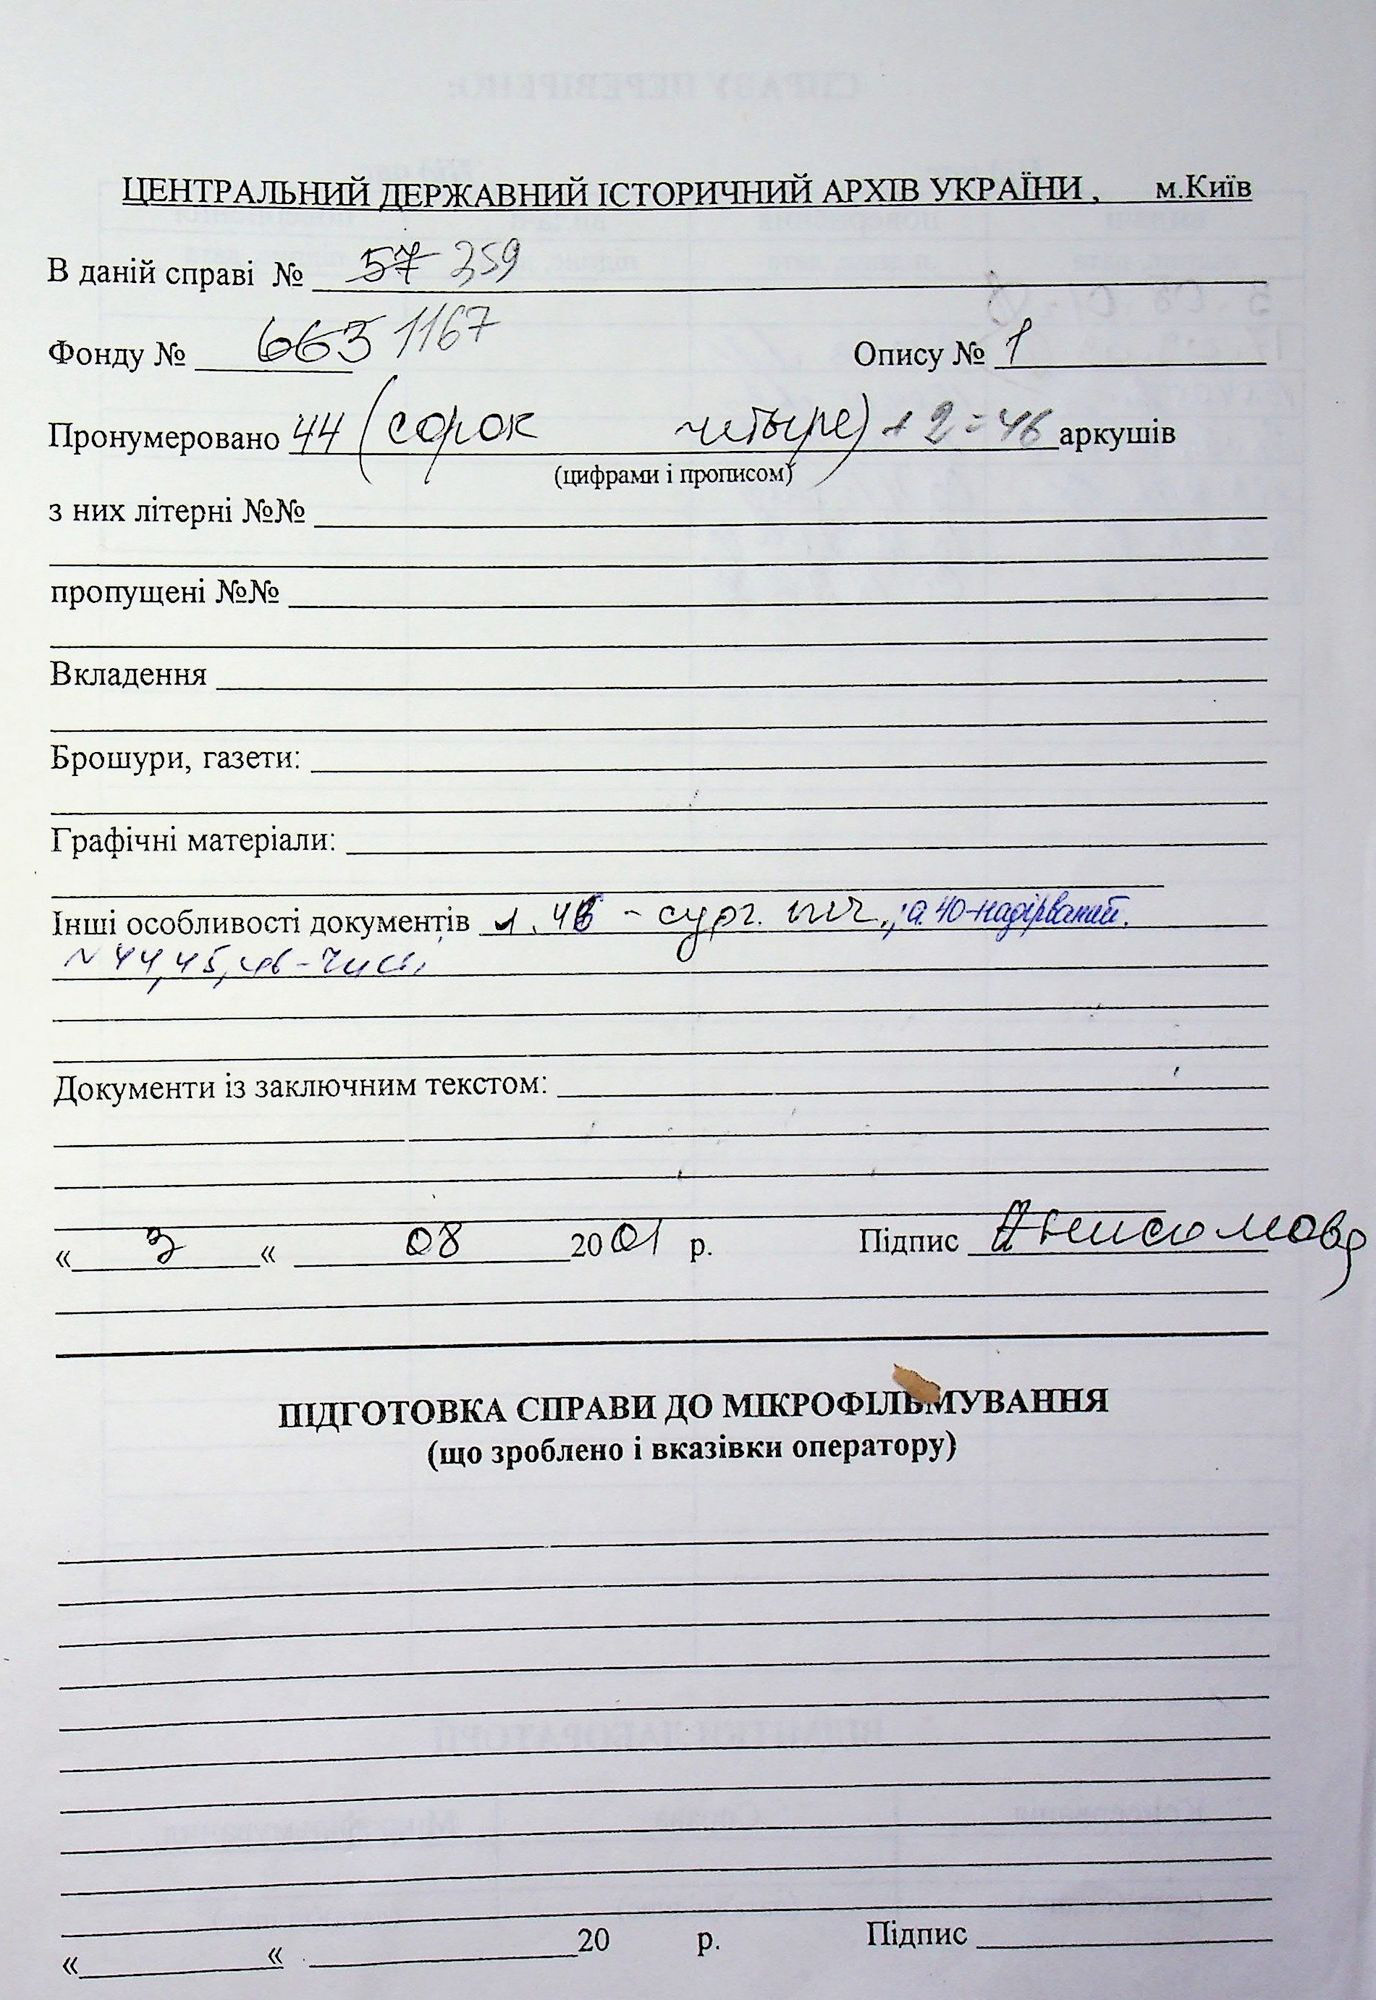 ЦЕНТРАЛЬНИЙ ДЕРЖАВНИЙ ІСТОРИЧНИЙ АРХІВ УКРАЇНИ, м.Київ
В даній справі № 57 259
Фонду № 663 1167 Опису № 1
Пронумеровано 44 (сорок четыре) + 2 = 46 аркушів
(цифрами і прописом)
з них літерні №№
пропущені №№
Вкладення
Брошури, газети:
Графічні матеріали:
Інші особливості документів л. 46 - сург. печ., а.40-надірваний.
44,45,46 - чисті
Документи із заключним текстом:
« 3 « 08 2001 р. Підпис Анисимова
ПІДГОТОВКА СПРАВИ ДО МІКРОФІЛЬМУВАННЯ
(що зроблено і вказівки оператору)
« « 20 р. Підпис